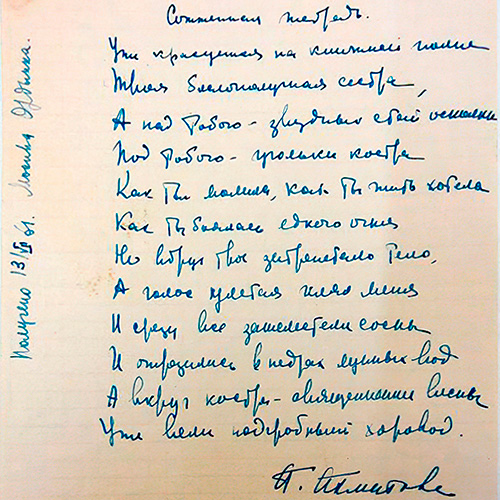 Сожженная тетрадь.
Уже красуется на книжной полке
Твоя благополучная сестра,
А над тобою - звездных стай осколки
Под тобою - угольки костра
Как ты молила, как ты жить хотела
Как ты боялась едкого огня
Но вдруг твое затрепетало тело,
А голос улетая клял меня
И сразу все зашелестели сосны
И отразились в недрах лунных вод
А вкруг костра - священнейшие весны
Уже вели надгробный хоровод.
А. Ахматова
Получено 13/VI 61.